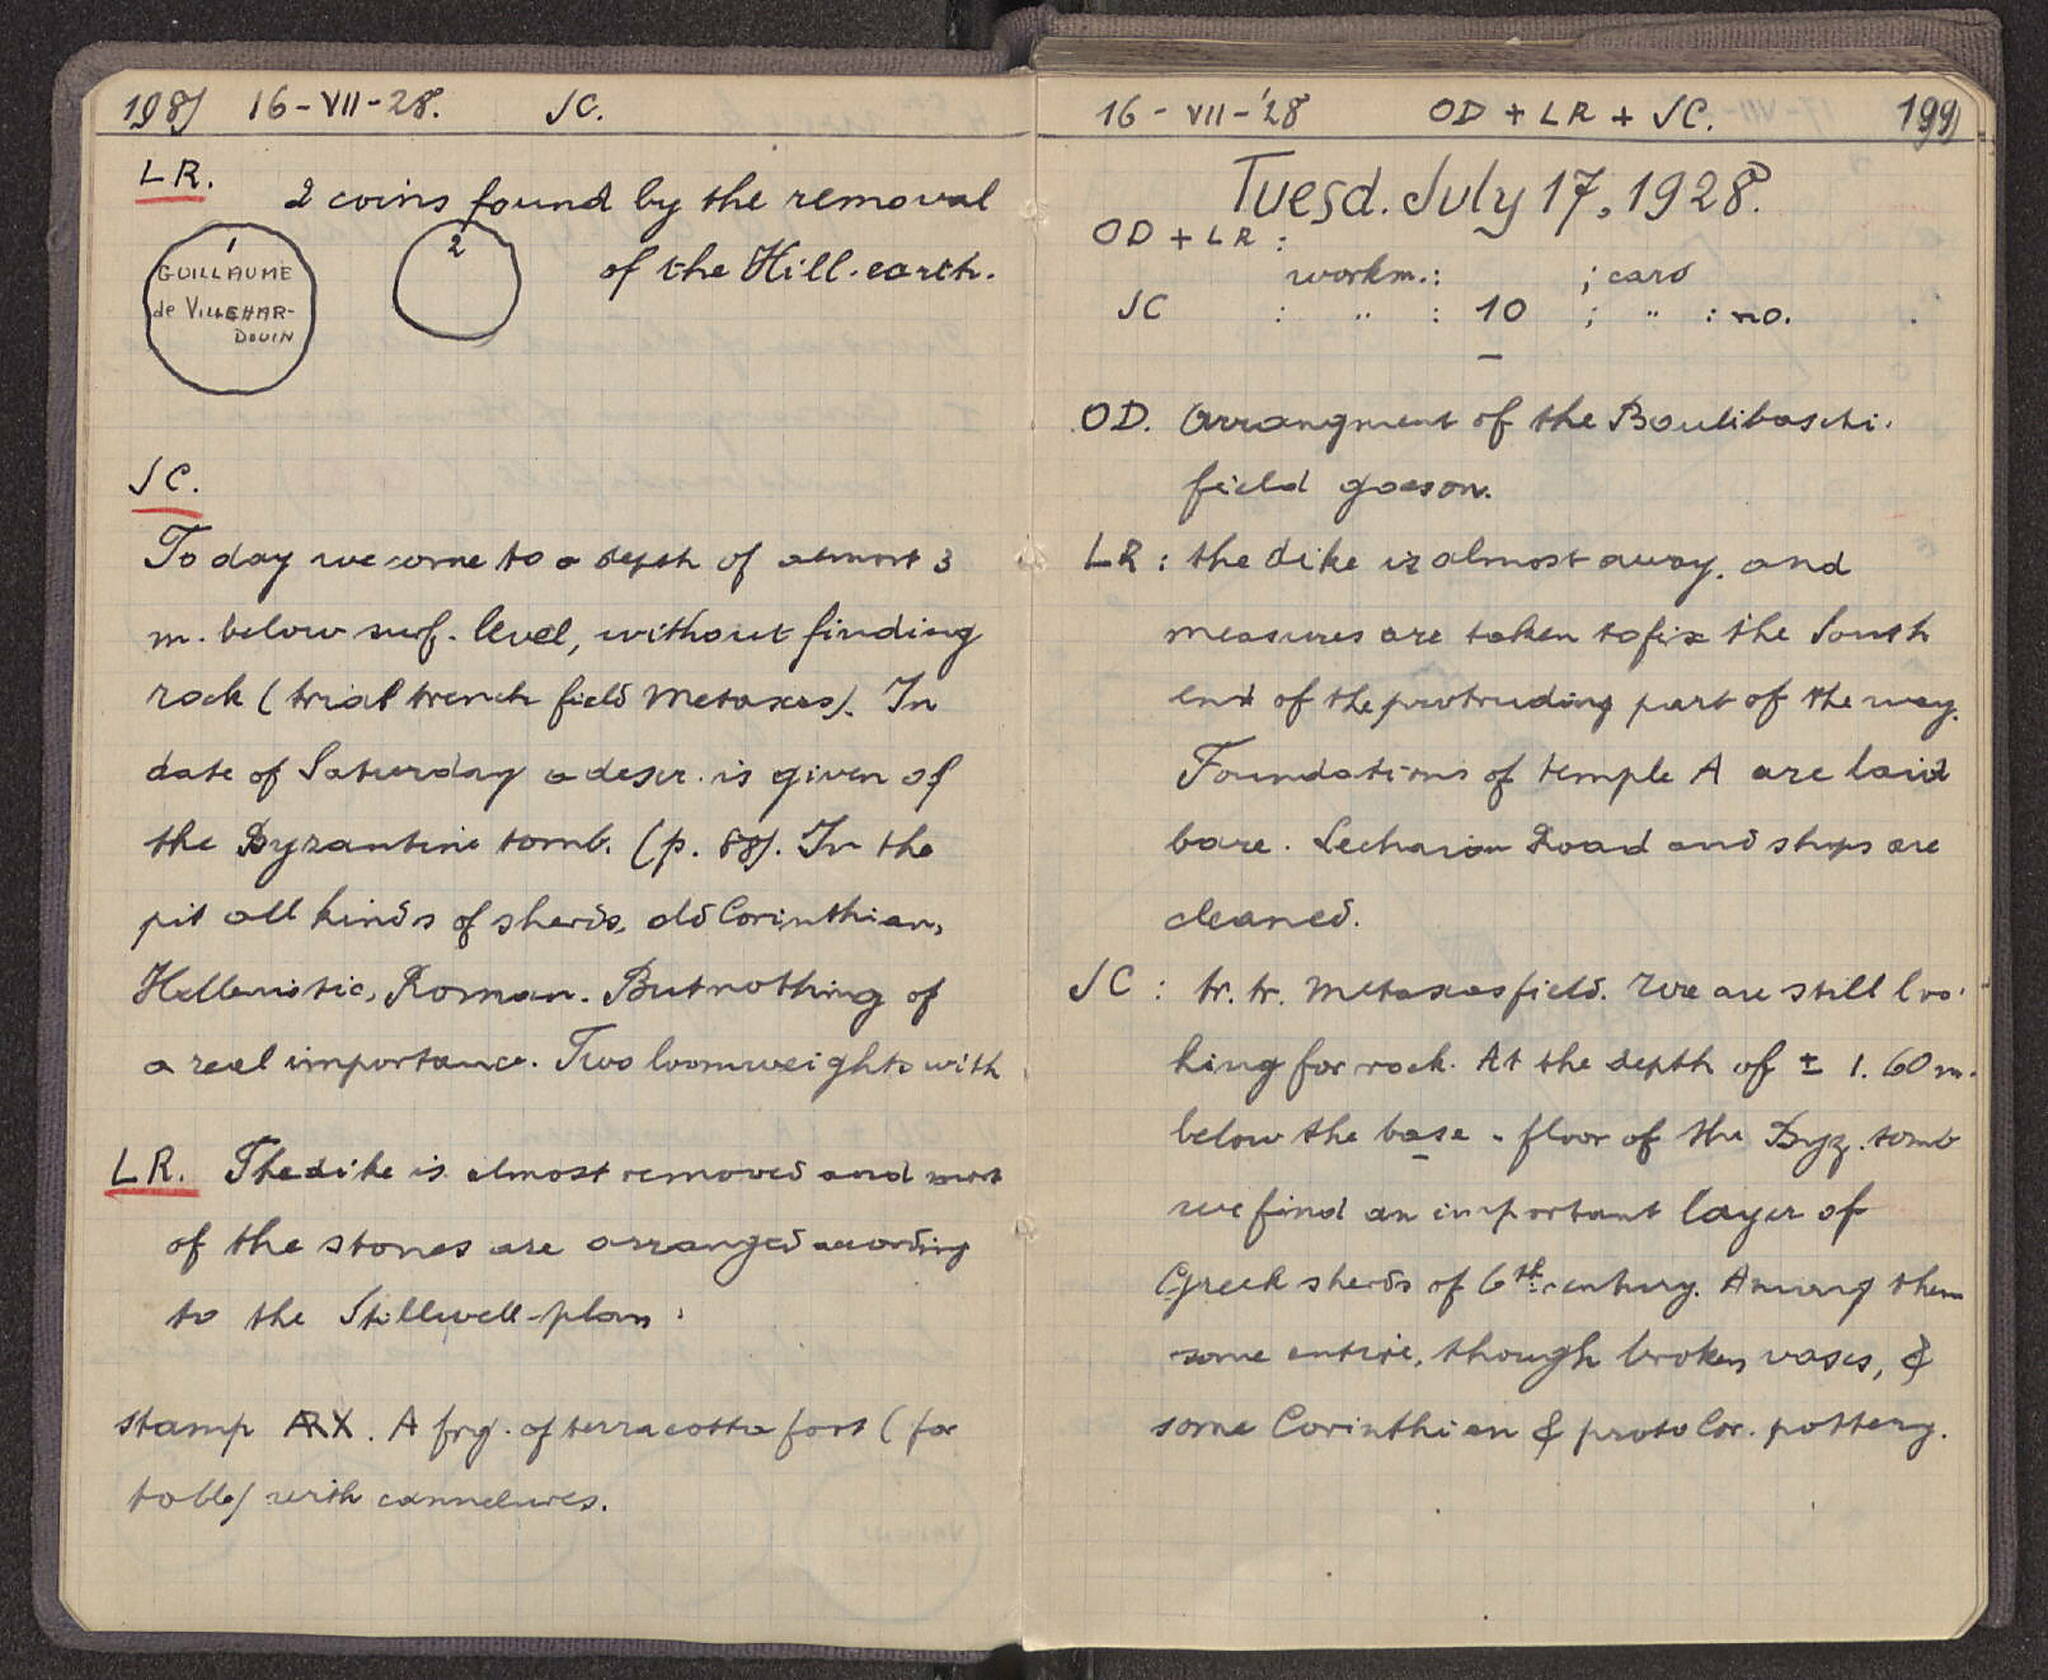 198) 16-VII-28. JC.
LR. 2 coins found by the removal
of the Hill-earth.
1
GUILLAUME
de VILLEHAR-
DOUIN
2
JC.
To day we come to a depth of almost 3
m. below surf. level, without finding
rock (trial trench field Metaxas). In
date of Saturday a descr. is given of
the Byzantine tomb. (p. 88). In the
pit all kinds of sherds, old Corinthian,
Hellenistic, Roman. But nothing of
a real importance. Two loomweights with
LR. The dike is almost removed and most
of the stones are arranged according
to the Stillwell-plan.
stamp RX. A frg. of terracotta foot (for
table) with cannelures.
16-VII-'28 OD + LR + JC. 199)
Tuesd. July 17, 1928.
OD + LR :
workm.: ; cars
JC : " : 10 ; " : no.
OD. Arrangment of the Boulibaschi-
field goes on.
LR : the dike is almost away. and
measures are taken to fix the South
end of the protruding part of the way.
Foundations of temple A are laid
bare. Lechaion Road and shops are
cleaned.
JC : tr. tr. Metaxasfield. We are still loo-
king for rock. At the depth of ± 1.60 m.
below the base-floor of the Byz. tomb
we find an important layer of
Greek sherds of 6th century. Among them
some entire, though broken vases, &
some Corinthian & proto Cor. pottery.